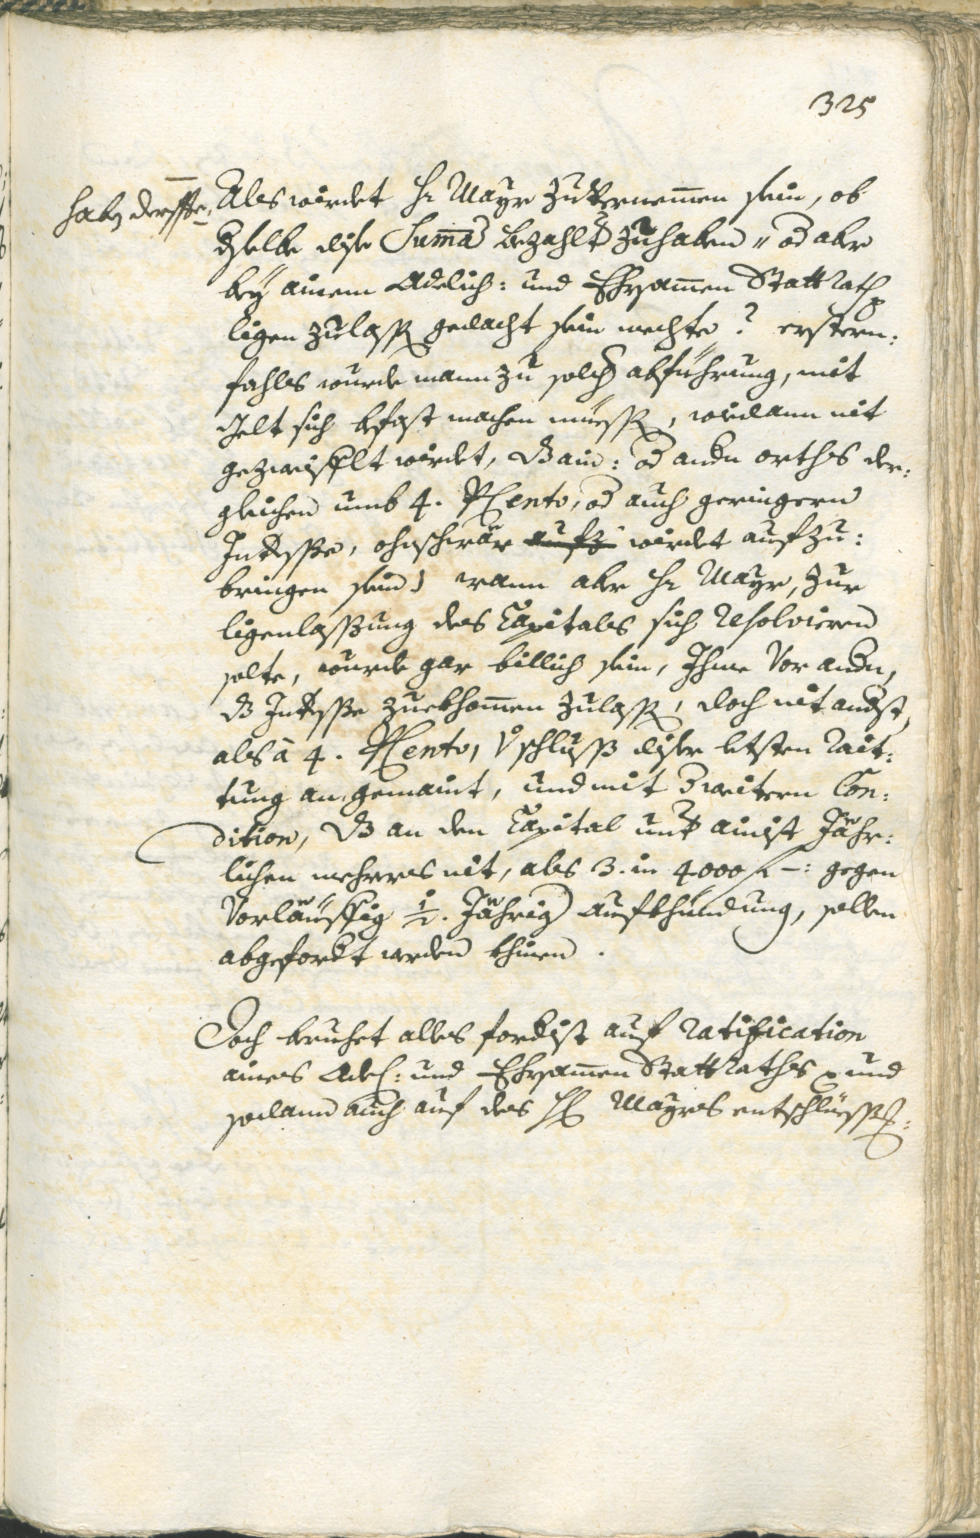 325
haben derffte.
Als wirdet H: Mayr zuvernemmen sein, ob
dselbe dise Summa bezahlt zuhaben, od aber
bey ainem Adelich: und Ehrsammen StattRath
ligen zulassen gedacht sein mechte? erstern:
fahls wurde mann zu solch abführung, mit
Gelt sich gefast machen müessen, wie dann nit
gezweiflet wirdet, dß ain: od andn orths der:
gleichen umb 4. PCento, od auch geringern
Interesse, ohnschwär aufz wirdet aufzu:
bringen sein) wann aber H: Mayr, zur
ligenlassung des Capitales sich resolvieren
solte, wurde gar billich sein, Ihme vor andn,
dß Interesse zuekhommen zulassen, doch nit andst,
als à 4. PCento, schluss diser letsten Rait:
tung an, gemaint, und mit weitern Con:
dition, dß an den Capital umb ainist Jähr:
lichen mehrers nit, als 3. in 4000 f –: gegen
Vorläuffig ½. Jährig Aufkhündung, sollen
abgefordert werden khinen.
Doch beruhet alles fordist auf ratification
aines Adel: und Ehrsammen StattRaths und
sodann auch auf des H: Mayrs entschlüessen.